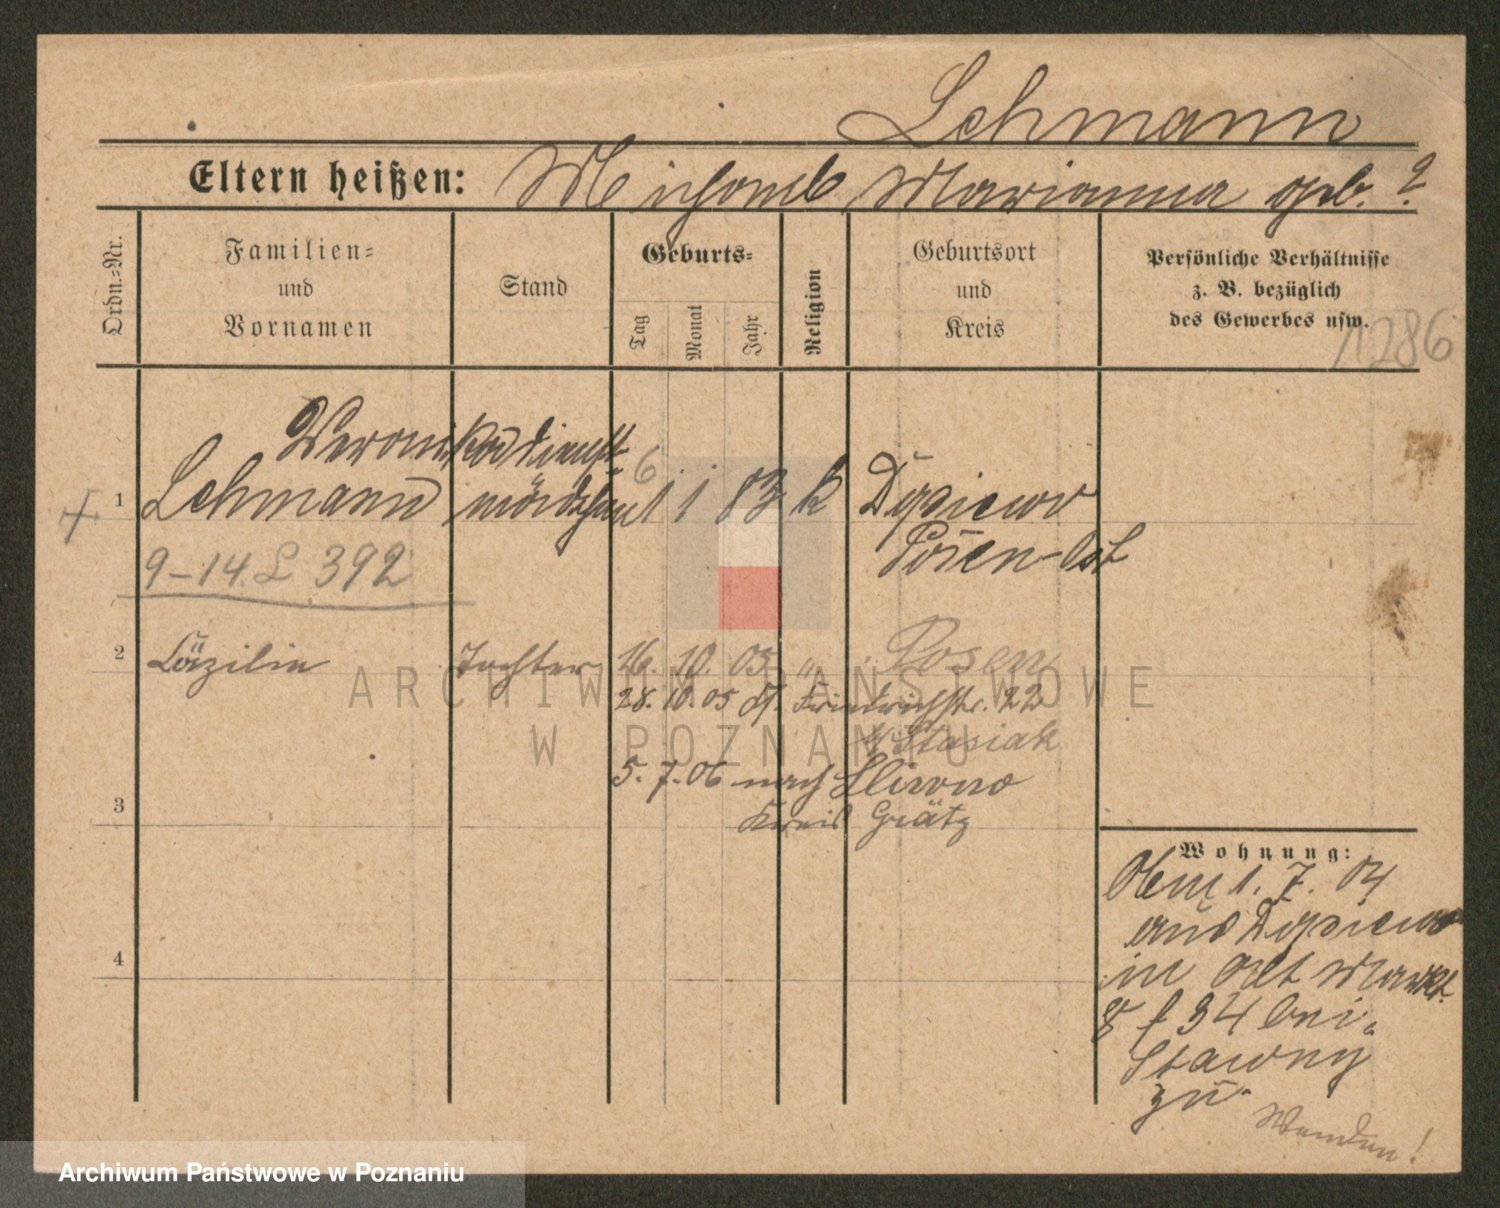 Lehmann
Eltern heißen: Michael Marianna geb. ?
Ordn.=Nr.
Familien=
und
Vornamen
Stand
Geburts=
Tag
Monat
Jahr
Religion
Geburtsort
und
Kreis
Persönliche Verhältnisse
z. B. bezüglich
des Gewerbes usw.
1286
Veronika dienst
1 Lehmann 1 83 k
6
Posen-Ost
9-14 L 392
2 Cäzilie Tochter 16. 10. 05 " Posen
28. 10. 05 Friedrichstr. 22
Stasiak
5. 7. 06 nach Sliwno
3
Kreis Grätz
4
Wohnung:
1. 7. 04
aus
in Alt Markt
34 bei
Stawny
zu.
Wenden!
ARCHIWUM PAŃSTWOWE
W POZNANIU
Archiwum Państwowe w Poznaniu